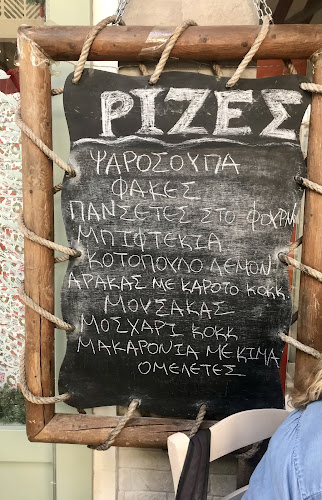 ΡΙΖΕΣ
ΨΑΡΟΣΟΥΠΑ
ΦΑΚΕΣ
ΠΑΝΣΕΤΕΣ ΣΤΟ ΦΟΥΡΝ
ΜΠΙΦΤΕΚΙΑ
ΚΟΤΟΠΟΥΛΟ ΛΕΜΟΝ
ΑΡΑΚΑΣ ΜΕ ΚΑΡΟΤΟ ΚΟΚΚ.
ΜΟΥΣΑΚΑΣ
ΜΟΣΧΑΡΙ ΚΟΚΚ
ΜΑΚΑΡΟΝΙΑ ΜΕ ΚΙΜΑ
ΟΜΕΛΕΤΕΣ